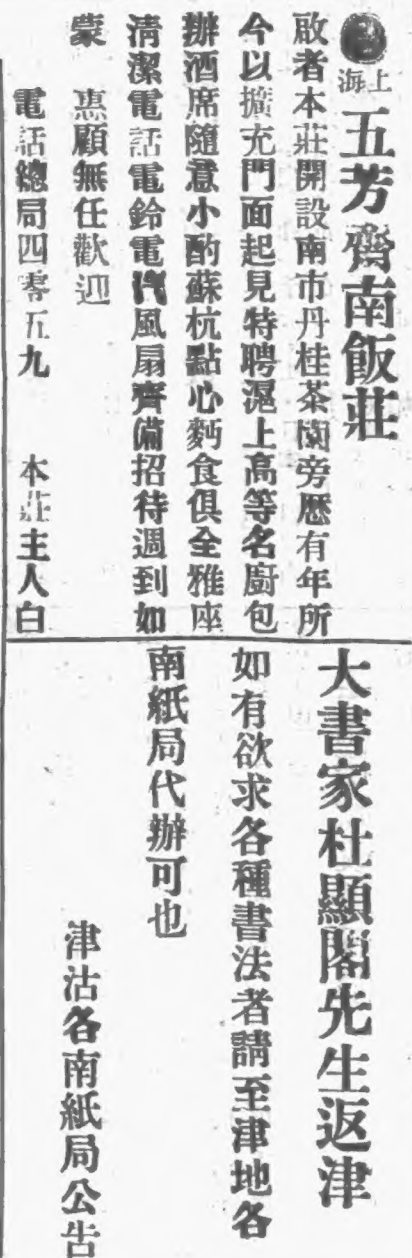 上海
五芳齋南飯莊
啟者本莊開設南市丹桂茶園旁歷有年所
今以擴充門面起見特聘滬上高等名廚包
辦酒席隨意小酌蘇杭點心麪食俱全雅座
清潔電話電鈴電汽風扇齊備招待週到如
蒙 惠顧無任歡迎
電話總局四零五九 本莊主人白
大書家杜顯閣先生返津
如有欲求各種書法者請至津地各
南紙局代辦可也
津沽各南紙局公告